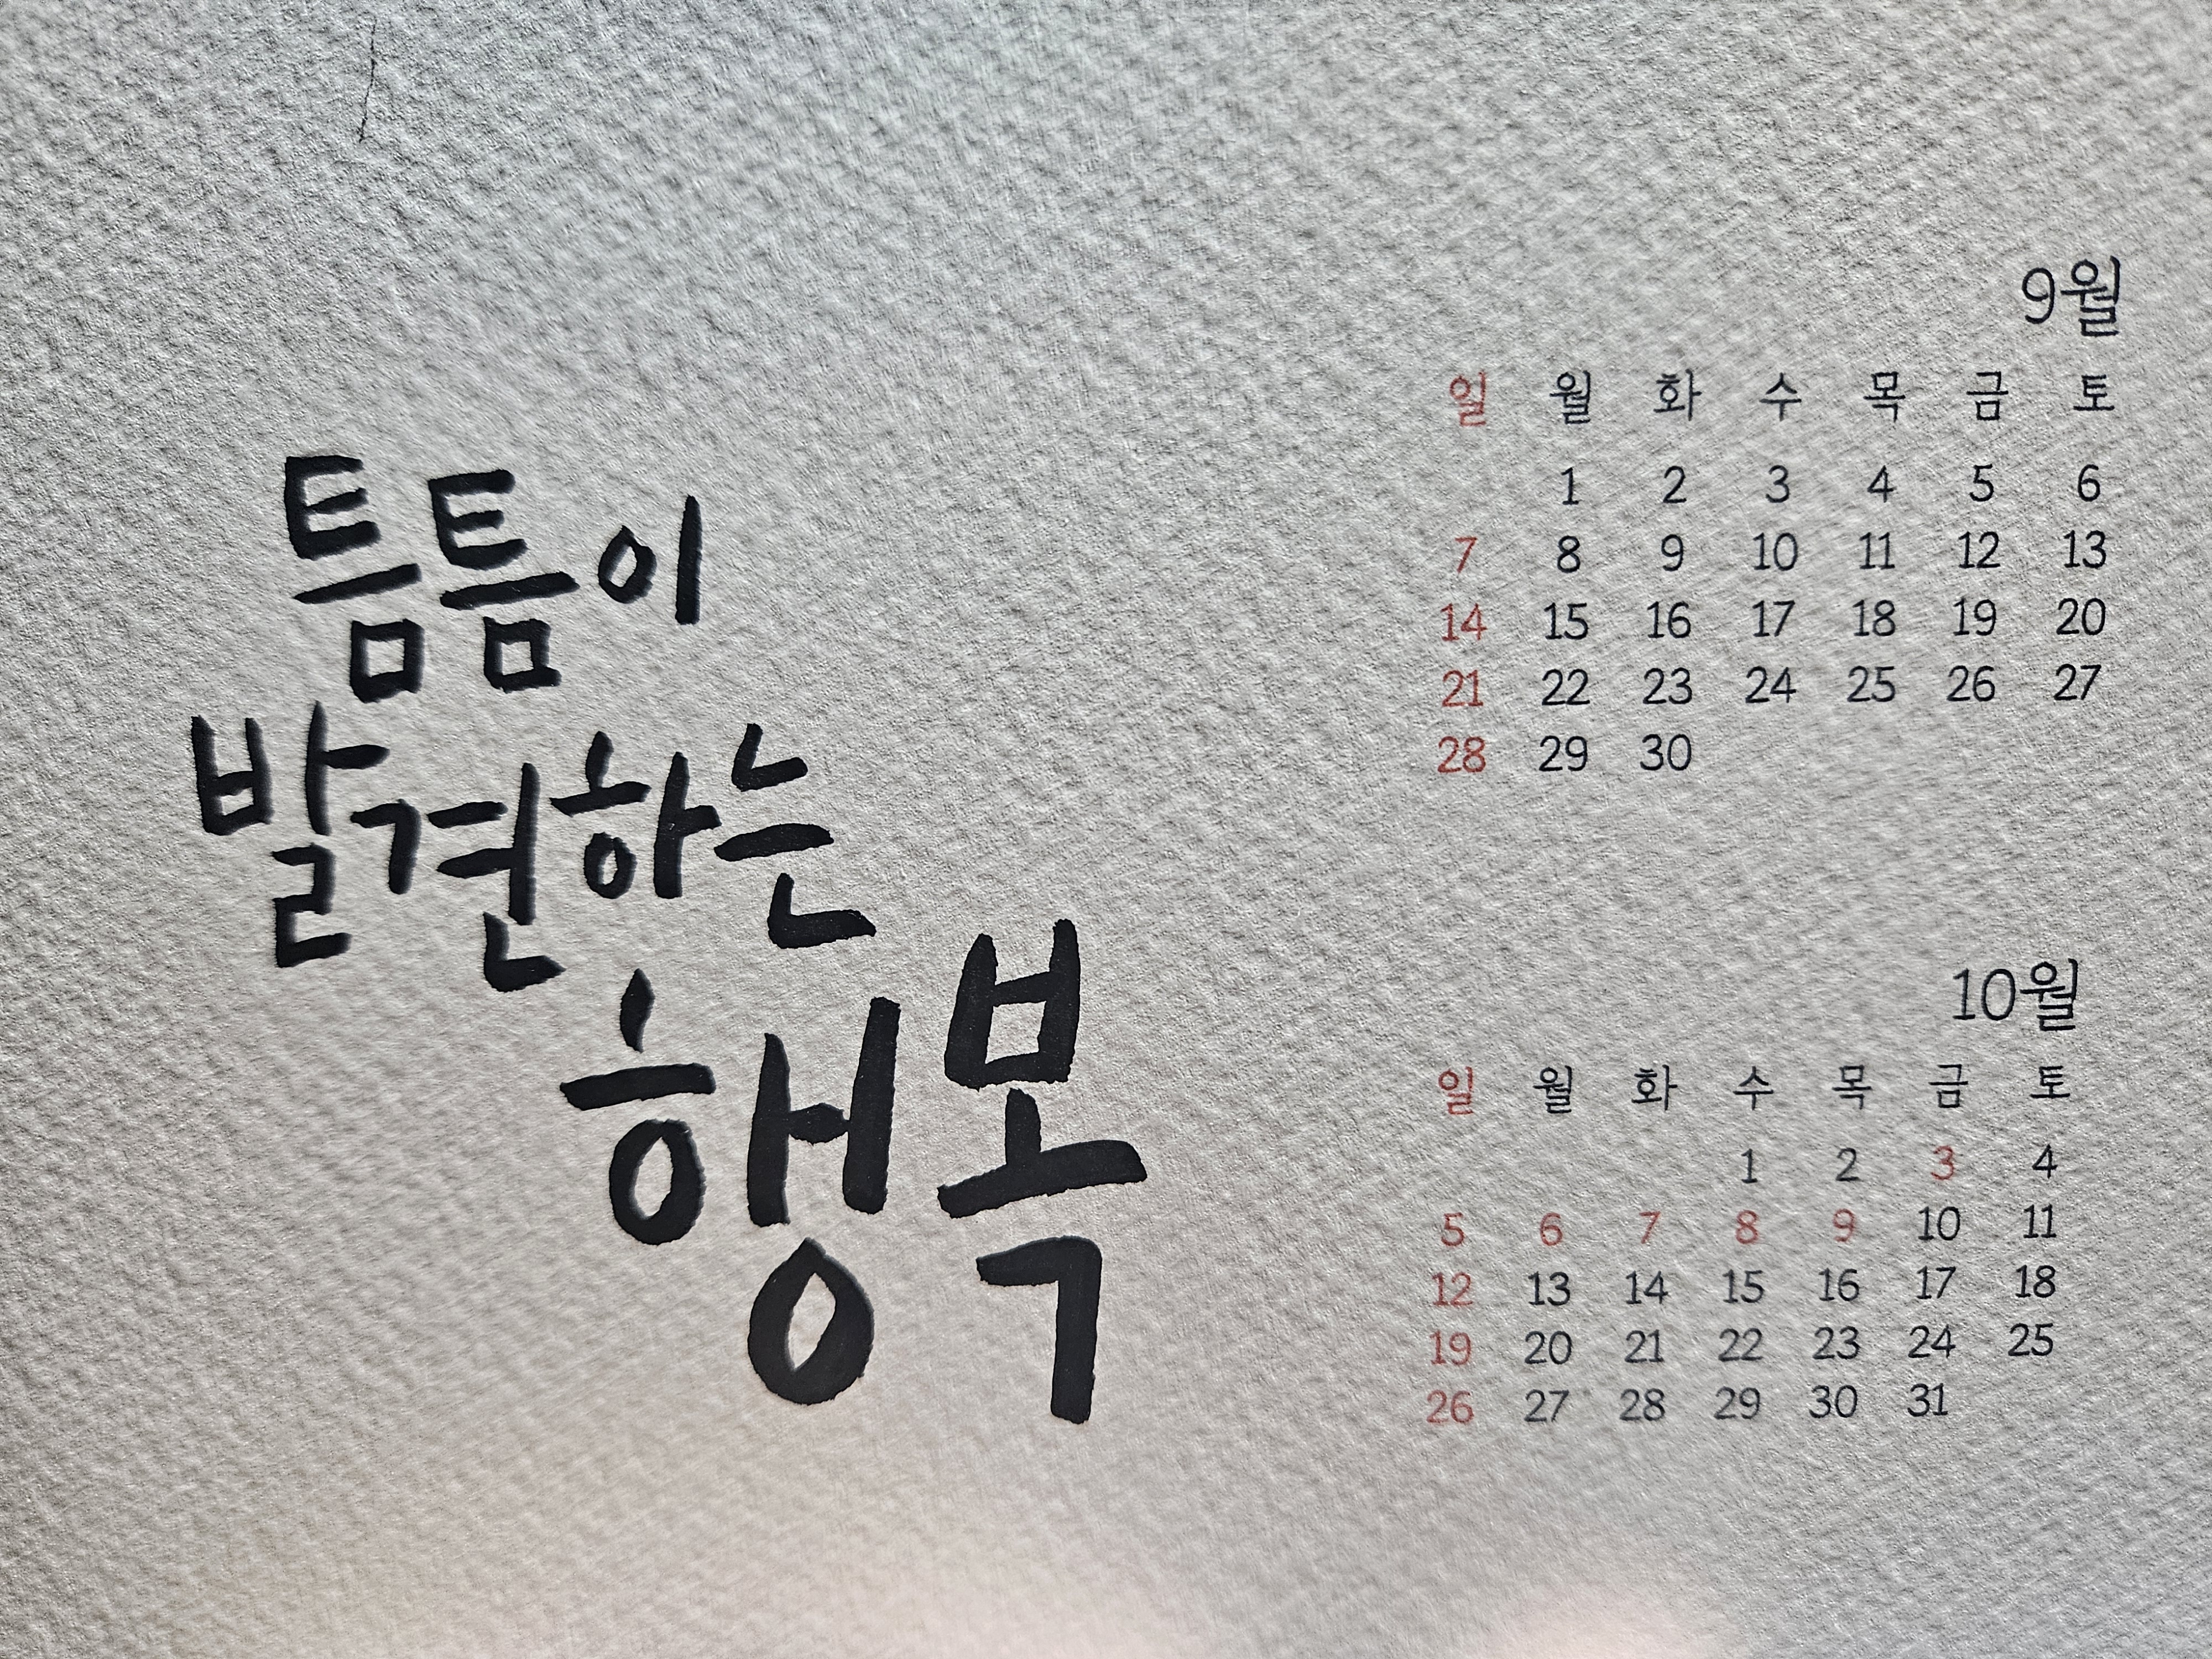 틈틈이
발견하는
행복
9월
일 월 화 수 목 금 토
1 2 3 4 5 6
7 8 9 10 11 12 13
14 15 16 17 18 19 20
21 22 23 24 25 26 27
28 29 30
10월
일 월 화 수 목 금 토
1 2 3 4
5 6 7 8 9 10 11
12 13 14 15 16 17 18
19 20 21 22 23 24 25
26 27 28 29 30 31